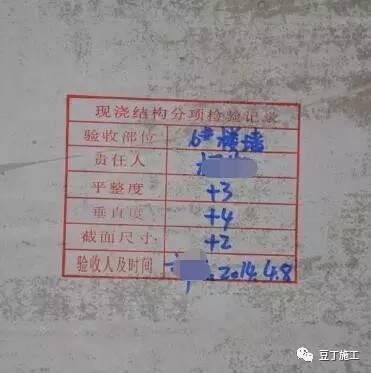 现浇结构分项检验记录
验收部位 6#楼墙
责任人
平整度 +3
垂直度 +4
截面尺寸 +2
验收人及时间 2014.4.8
豆丁施工